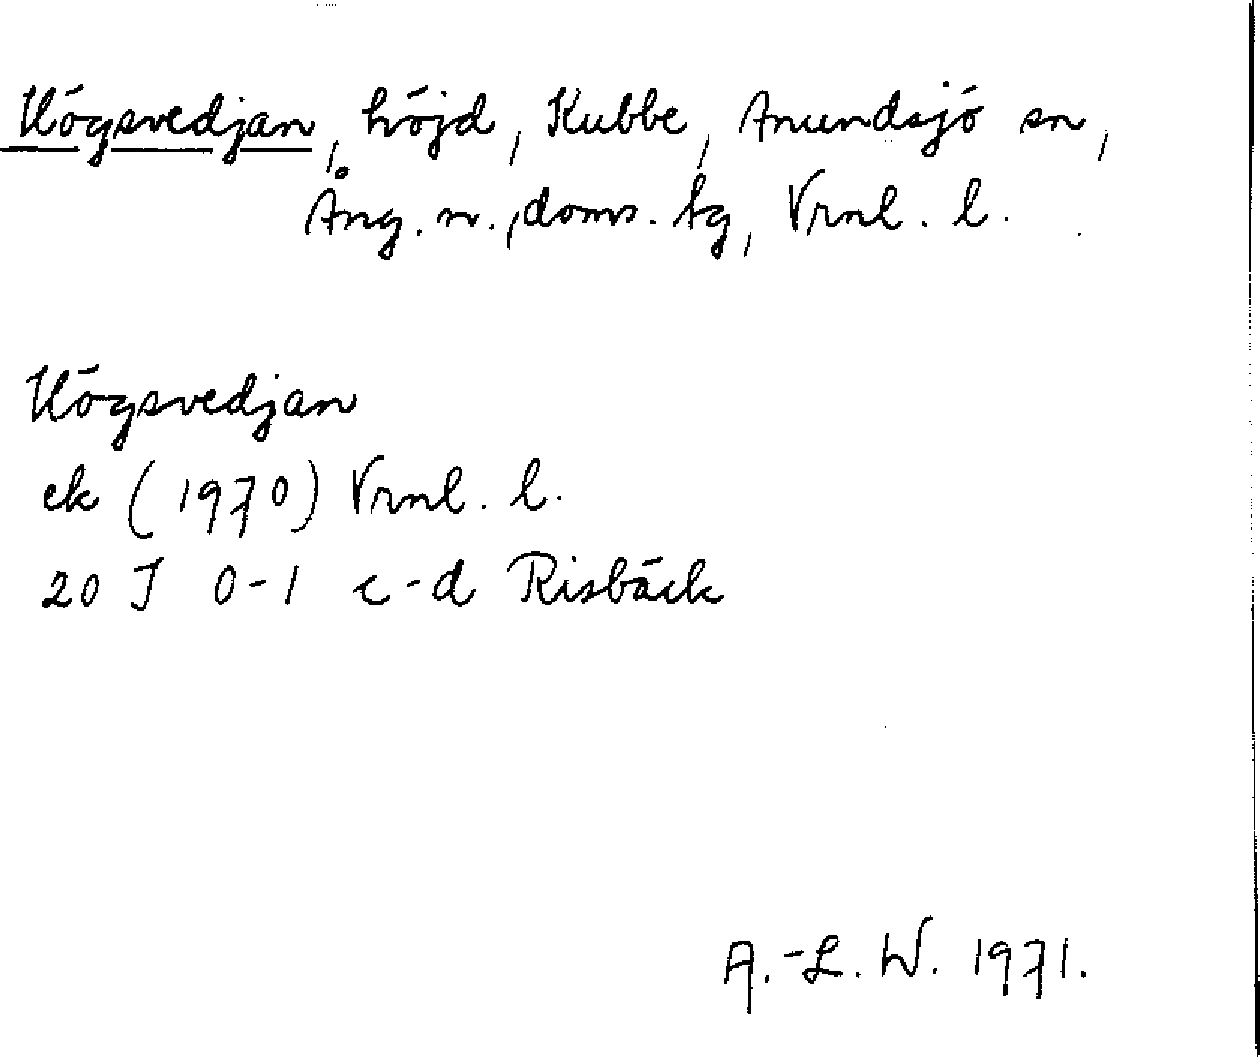 Högsvedjan, höjd, Kubbe, Anundsjö sn,
Ång. n., doms. tg, Vrnl. l.
Högsvedjan
ek (1970) Vrnl. l.
20 J 0-1 c-d Risbäck
A.-L. W. 1971.